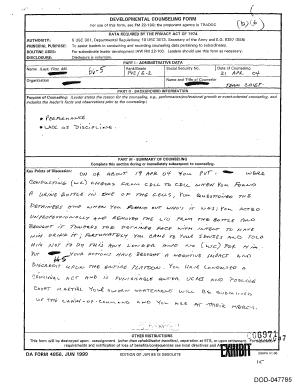 DEVELOPMENTAL COUNSELING FORM
For use of this form, see FM 22-100; the proponent agency is TRADOC
(b)(6)
DATA REQUIRED BY THE PRIVACY ACT OF 1974
AUTHORITY: 5 USC 301, Departmental Regulations; 10 USC 3013, Secretary of the Army and E.O. 9397 (SSN)
PRINCIPAL PURPOSE: To assist leaders in conducting and recording counseling data pertaining to subordinates.
ROUTINE USES: For subordinate leader development IAW FM 22-100. Leaders should use this form as necessary.
DISCLOSURE: Disclosure is voluntary.
PART I - ADMINISTRATIVE DATA
Name (Last, First, MI) Rank/Grade Social Security No. Date of Counseling
21 APR 04
Organization Name and Title of Counselor
TEAM CHIEF
PART II - BACKGROUND INFORMATION
Purpose of Counseling: (Leader states the reason for the counseling, e.g. performance/professional growth or event-oriented counseling, and includes the leader's facts and observations prior to the counseling):
• PERFORMANCE
• LACK OF DISCIPLINE
PART III - SUMMARY OF COUNSELING
Complete this section during or immediately subsequent to counseling.
Key Points of Discussion:
ON OR ABOUT 19 APR 04 YOU PVT WERE
CONDUCTING (WC) CHECKS FROM CELL TO CELL WHEN YOU FOUND
A URINE BOTTLE IN ONE OF THE CELLS. YOU QUESTIONED THE
DETAINEES AND WHEN YOU FOUND OUT WHO'S IT WAS, YOU ACTED
UNPROFESSIONALLY AND REMOVED THE LID FROM THE BOTTLE AND
BROUGHT IT TOWARDS THE DETAINEE FACE WITH INTENT TO HAVE
HIM DRINK IT; FORTUNATELY YOU CAME TO YOUR SENSES AND TOLD
HIM NOT TO DO THIS ANY LONGER AND NO (WC) FOR HIM.
PVT YOUR ACTIONS HAVE BROUGHT A NEGATIVE IMPACT AND
DISCREDIT UPON THE ENTIRE PLATOON. YOU HAVE CONDUCTED A
CRIMINAL ACT AND IS PUNISHABLE UNDER UCMJ AND POSSIBLE
COURT MARTIAL. YOUR SWORN STATEMENT WILL BE SUBMITTED
UP THE CHAIN-OF-COMMAND AND YOU ARE AT THEIR MERCY.
OTHER INSTRUCTIONS
This form will be destroyed upon: reassignment (other than rehabilitative transfers), separation at ETS, or upon retirement. For separation requirements and notification of loss of benefits/consequences see local directives and
DA FORM 4856, JUN 1999
EDITION OF JUN 85 IS OBSOLETE
EXHIBIT
15
DOD-047795